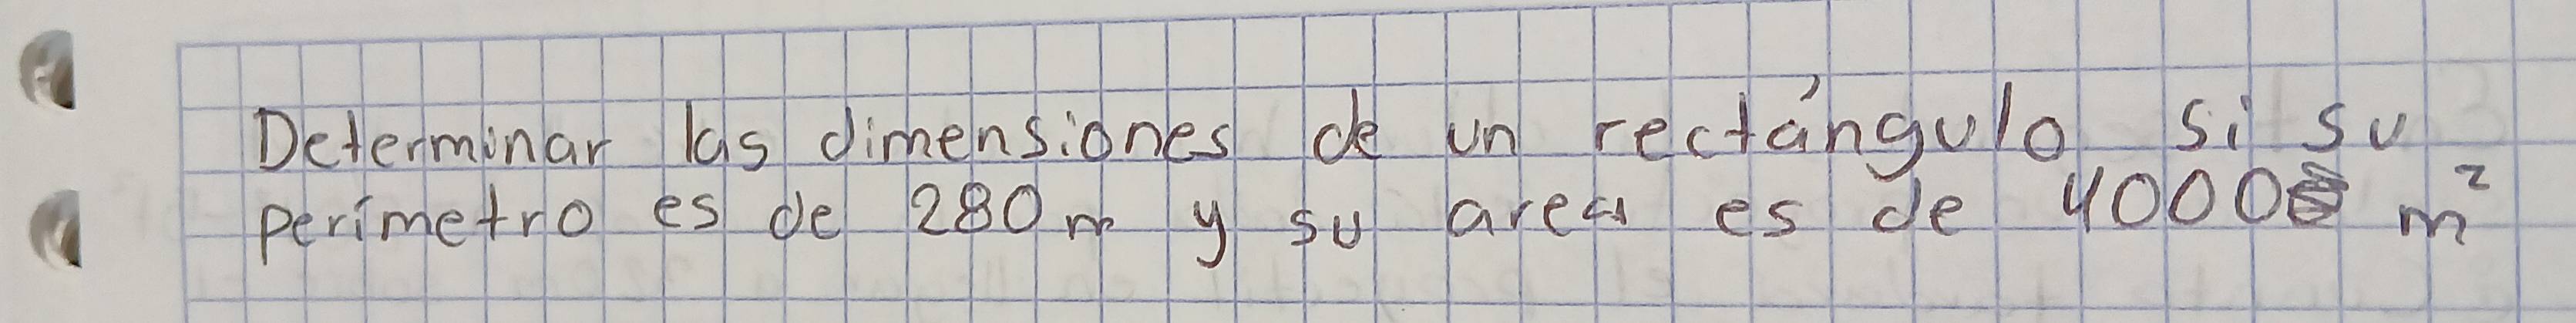 Determinar las dimensiones de un rectángulo si su
perímetro es de 280 m y su area es de 4000 m²